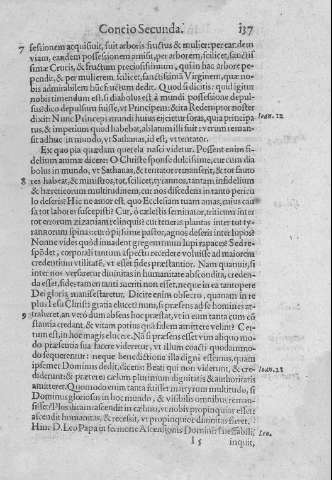 Concio Secunda. 137
7 sessionem acquisiuit, fuit arboris fructus & mulier: per eandem
viam, eandem possessionem amisit, per arborem, scilicet, sanctis
simæ Crucis, & fructum preciosissimum, qui in hac arbore pe-
pendit, & per mulierem, scilicet, sanctissimā Virginem, quæ no-
bis admirabilem hūc fructum dedit. Quod si dicitis: quid igitur
nobis timendum est, si diabolus est à mundi possessione depul-
sus
dico depulsum fuisse, vt Principem: & ita Redemptor noster
dixit: Nunc Princeps mundi huius ejicietur foras, quia principa- Ioan. 12
tus, & imperium quod habebat, ablatum illi fuit: verum reman-
sit adhuc in mundo, vt Sathanas, id est, vt tentator.
Ex quo pia quædam querela nasci videtur. Possent enim fi-
delium animæ dicere: O Christe sponse dulcissime, cur cum dia
bolus in mundo, vt Sathanas, & tentator remanserit, & tot fauto
8 res habeat, & ministros, tot, scilicet, tyrannos, tantam infidelium
& hæreticorum multitudinem, cur nos discedens in tanto pericu
lo deseris? Hic ne amor est, quo Ecclesiam tuam amas, cuius cau
sa tot labores suscepisti? Cur, ô cælestis seminator, triticum inter
tot errorum zizania relinquis? cur teneras plantas inter tot ty-
rannorum spinas
pijssime pastor, agnos deseris inter lupos?
Nonne vides quòd inuadent gregem tuum lupi rapaces? Sed re-
spōdet, corporali tantum aspectu recedere voluisse ad maiorem
credentium vtilitatem, vt esset fides præstantior. Nam quamuis, si
inter nos versaretur diuinitas in humanitate abscondita, creden-
da esset, fides tamen tanti meriti non esset, neque in ea tantopere
Dei gloria manifestaretur. Dicite enim obsecro, quanam in re
plus Iesu Christi gratia eluceret
num, si præsens ad se homines at-
9 traheret, an verò dum absens hoc præstat, vt in eum tanta cum cō
stantia credant, & vitam potius quā fidem amittere velint? Cer-
tum est, in hoc magis elucere. Nā si præsens esset vim aliquo mo-
do præsentia sua facere videretur, vt illum coacti quodammo-
do sequerentur: neque benedictione illa digni essemus, quam
ipsemet Dominus dedit, dicens: Beati qui non viderunt, & cre-
diderunt: & præterea cælum plurimum dignitatis & authoritatis
amitteret. Quomodo enim tanta fuisset martyrum multitudo, si
Dominus gloriosus in hoc mundo, & visibilis omnibus reman-
sisset? Plus dicam: ascendit in cælum, vt nobis propinquior esset:
ascendit humanitas, & recessit, vt propinquior diuinitas fieret.
Hinc D. Leo Papa in sermone Ascensionis Domini: Ineffabili, Leo.
I 5 inquit,